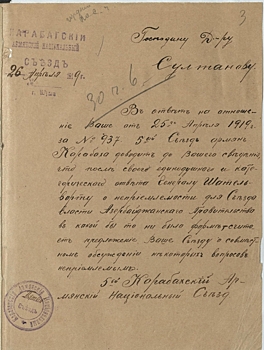 3
КАРАБАГСКІЙ
АРМЯНСКІЙ НАЦІОНАЛЬНЫЙ
СЪѢЗДЪ
26 апрѣля 19 г.
г. Шуша
Господину Д-ру
Султанову.
Въ отвѣтъ на отноше-
ніе Ваше отъ 25го Апрѣля 1919 г.
за № 437 5ый Съѣздъ армянъ
Карабага доводитъ до Вашего свѣдѣнія
что послѣ своего единодушнаго и кате-
горическаго отвѣта Генералу Шатель-
ворту о непріемлемости для Съѣзда
власти Азербайджанскаго Правительства
въ какой бы то ни было формѣ, счита-
етъ предложеніе Ваше Съѣзду о совмѣст-
номъ обсужденіи некоторыхъ вопросовъ
непріемлемымъ.
5ый Карабахскій Ар-
мянскій Національный Съѣздъ